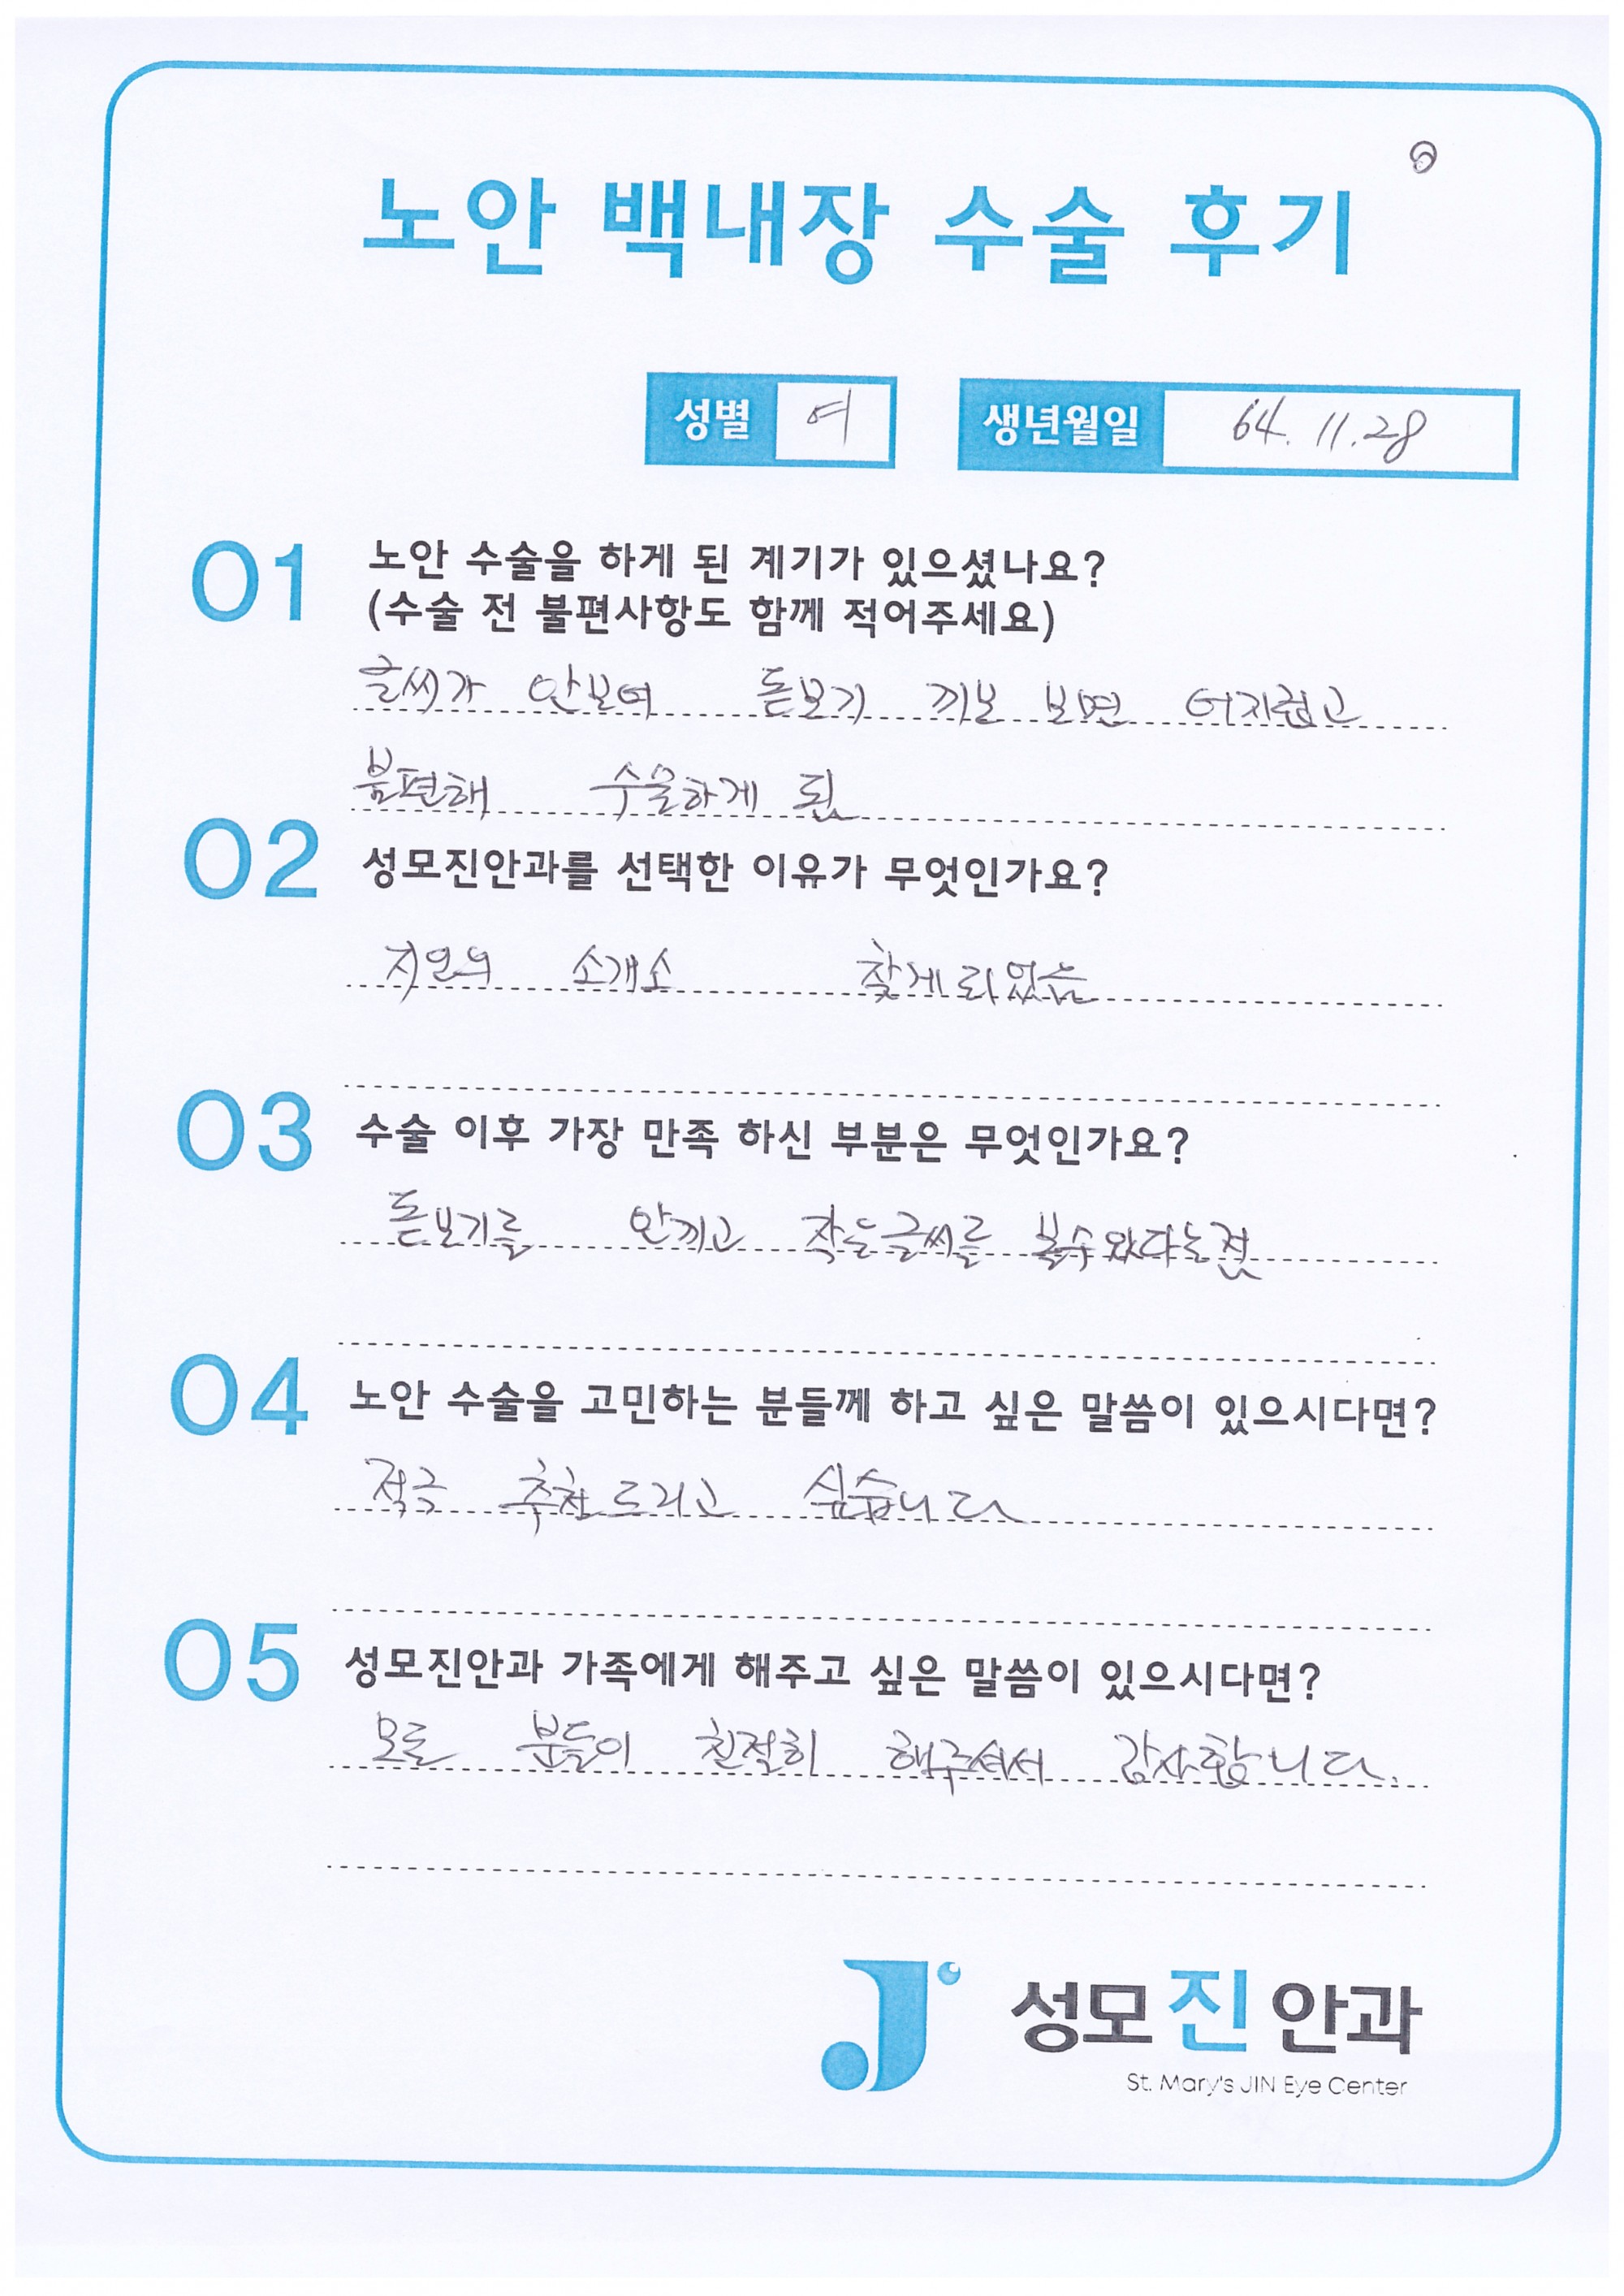 노안 백내장 수술 후기
성별 여 생년월일 64. 11. 28
01 노안 수술을 하게 된 계기가 있으셨나요?
(수술 전 불편사항도 함께 적어주세요)
글씨가 안보여 돋보기 끼보 보면 어지럽고
불편해 수술하게 됨
02 성모진안과를 선택한 이유가 무엇인가요?
지인의 소개소 찾게 되었음
03 수술 이후 가장 만족 하신 부분은 무엇인가요?
돋보기를 안끼고 작은글씨를 볼수있다는점
04 노안 수술을 고민하는 분들께 하고 싶은 말씀이 있으시다면?
적극 추천드리고 싶습니다
05 성모진안과 가족에게 해주고 싶은 말씀이 있으시다면?
모든 분들이 친절히 해주셔서 감사합니다.
성모진안과
St. Mary's JIN Eye Center